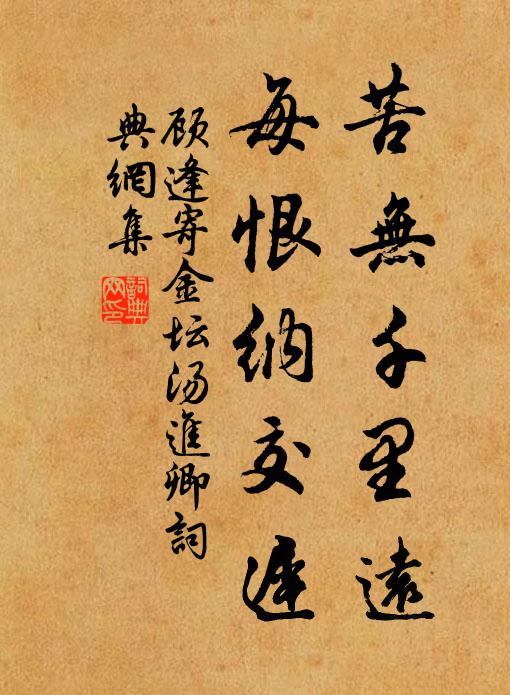 苦無千里遠
每恨納交遲
顾逢寄金坛汤進卿詞
典網集
詞典网印